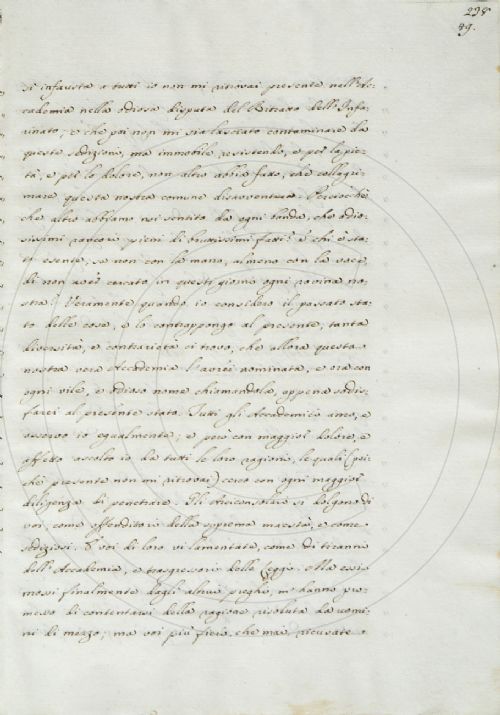 238
49.
si infausta a tutti io non mi ritrovai presente nell'Ac-
cademia nella odiosa disputa del Bizzaro dell'Infa-
rinato, e che poi non mi sia lasciato contaminare da
queste sedizioni, ma immobile resistendo, e per la pie-
tà, e per lo dolore, non altro abbia fatto, che collagri-
mare questa nostra comune disavventura. Perciocchè
che altro abbiamo noi sentito da ogni banda, che odio-
sissimi rancori pieni di bruttissimi fatti? e chi è sta-
to esente, se non con la mano, almeno con la voce
di non aver cercato in questi giorni ogni rovina no-
stra? Veramente quando io considero il passato sta-
to delle cose, e lo contrappongo al presente, tanta
diversità, e contrarietà ci trovo, che allora questa
nostra vera Accademia l'avrei nominata, e ora con
ogni vile, e odioso nome chiamandola, appena sodis-
farei al presente stato. Tutti gli Accademici amo, e
osservo io egualmente; e però con maggior dolore, e
affetto accolto io da tutti le loro ragioni, le quali (poi-
chè presente non mi ritrovai) cerco con ogni maggior
diligenza di penetrare. Gli Arciconsolari si dolgono di
voi, come offenditori della suprema maestà, e come
sediziosi. E voi di loro vi lamentate, come di tiranni
dell'Accademia, e trasgressori delle leggi. Ma essi
mossi finalmente dagli altrui preghi, m'hanno pro-
messo di contentarsi della ragione risoluta da uomi-
ni di mezzo; ma voi più fieri, che mai, ricusate